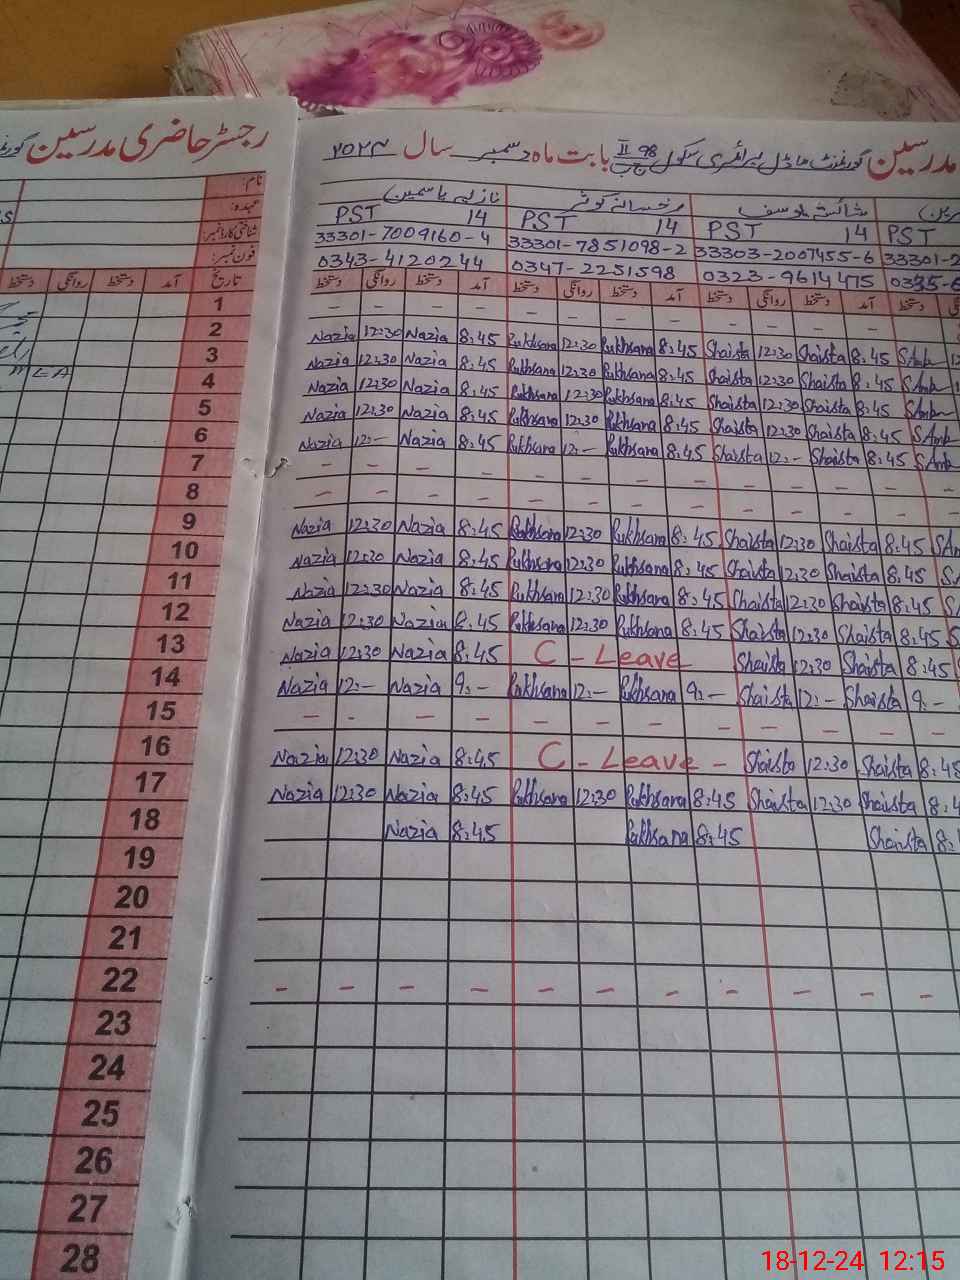 رجسٹر حاضری مدرسین
مدرسین گورنمنٹ ماڈل پرائمری سکول 98 ج ب II بابت ماہ دسمبر سال ۲۰۲۴
نام:
عہدہ:
شناختی کارڈ نمبر:
فون نمبر:
تاریخ آمد دستخط روانگی دستخط
نازیہ یاسمین رخسانہ کوثر شائستہ یوسف
PST 14 PST 14 PST 14 PST
33301-7009160-4 33301-7851098-2 33303-2007455-6 33301-2
0343-4120244 0347-2251598 0323-9614475 0335-6
دستخط روانگی دستخط آمد دستخط روانگی دستخط آمد دستخط روانگی دستخط آمد دستخط
1 - - - - - - - - - - - -
2 Nazia 12:30 Nazia 8:45 Rukhsana 12:30 Rukhsana 8:45 Shaista 12:30 Shaista 8:45
3 Nazia 12:30 Nazia 8:45 Rukhsana 12:30 Rukhsana 8:45 Shaista 12:30 Shaista 8:45
4 Nazia 12:30 Nazia 8:45 Rukhsana 12:30 Rukhsana 8:45 Shaista 12:30 Shaista 8:45
5 Nazia 12:30 Nazia 8:45 Rukhsana 12:30 Rukhsana 8:45 Shaista 12:30 Shaista 8:45
6 Nazia 12:- Nazia 8:45 Rukhsana 12:- Rukhsana 8:45 Shaista 12:- Shaista 8:45
7 - - - - - - - - - - - -
8 - - - - - - - - - - - -
9 Nazia 12:30 Nazia 8:45 Rukhsana 12:30 Rukhsana 8:45 Shaista 12:30 Shaista 8:45
10 Nazia 12:30 Nazia 8:45 Rukhsana 12:30 Rukhsana 8:45 Shaista 12:30 Shaista 8:45
11 Nazia 12:30 Nazia 8:45 Rukhsana 12:30 Rukhsana 8:45 Shaista 12:30 Shaista 8:45
12 Nazia 12:30 Nazia 8:45 Rukhsana 12:30 Rukhsana 8:45 Shaista 12:30 Shaista 8:45
13 Nazia 12:30 Nazia 8:45 C - Leave Shaista 12:30 Shaista 8:45
14 Nazia 12:- Nazia 9:- Rukhsana 12:- Rukhsana 9:- Shaista 12:- Shaista 9:-
15 - - - - - - - - - - - -
16 Nazia 12:30 Nazia 8:45 C - Leave - Shaista 12:30 Shaista 8:45
17 Nazia 12:30 Nazia 8:45 Rukhsana 12:30 Rukhsana 8:45 Shaista 12:30 Shaista 8:4
18 Nazia 8:45 Rukhsana 8:45 Shaista 8:
19
20
21
22 - - - - - - - - - - -
23
24
25
26
27
28
18-12-24 12:15